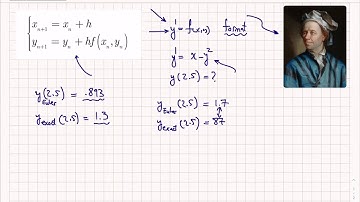 x_{n+1} = x_n + h
y_{n+1} = y_n + hf(x_n, y_n)
y' = f(x,y) format
y' = x - y²
y(2.5) = ?
y_{Euler}(2.5) = .893
y_{exact}(2.5) = 1.3
y_{Euler}(2.5) = 1.7
y_{exact}(2.5) = 87